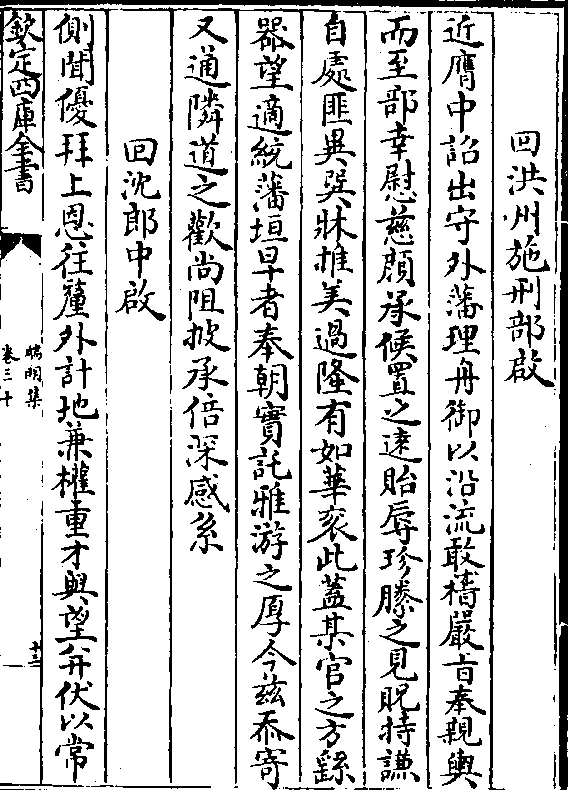 回洪州施刑部啟
近膺中詔出守外藩理舟御以沿流敢檮嚴㫖奉親輿
而至部幸慰慈顔承候置之逺貽辱珍縢之見貺持謙
自處匪異巽牀推美過隆有如華衮此蓋某官之方繇
器望適統藩垣早者奉朝實託雅游之厚今兹忝寄
又通隣道之歡尚阻披承倍深感系
回沈郎中啟
側聞優拜上恩往釐外計地兼權重才與望并伏以常
欽定四庫全書
端明集
卷三十
十三